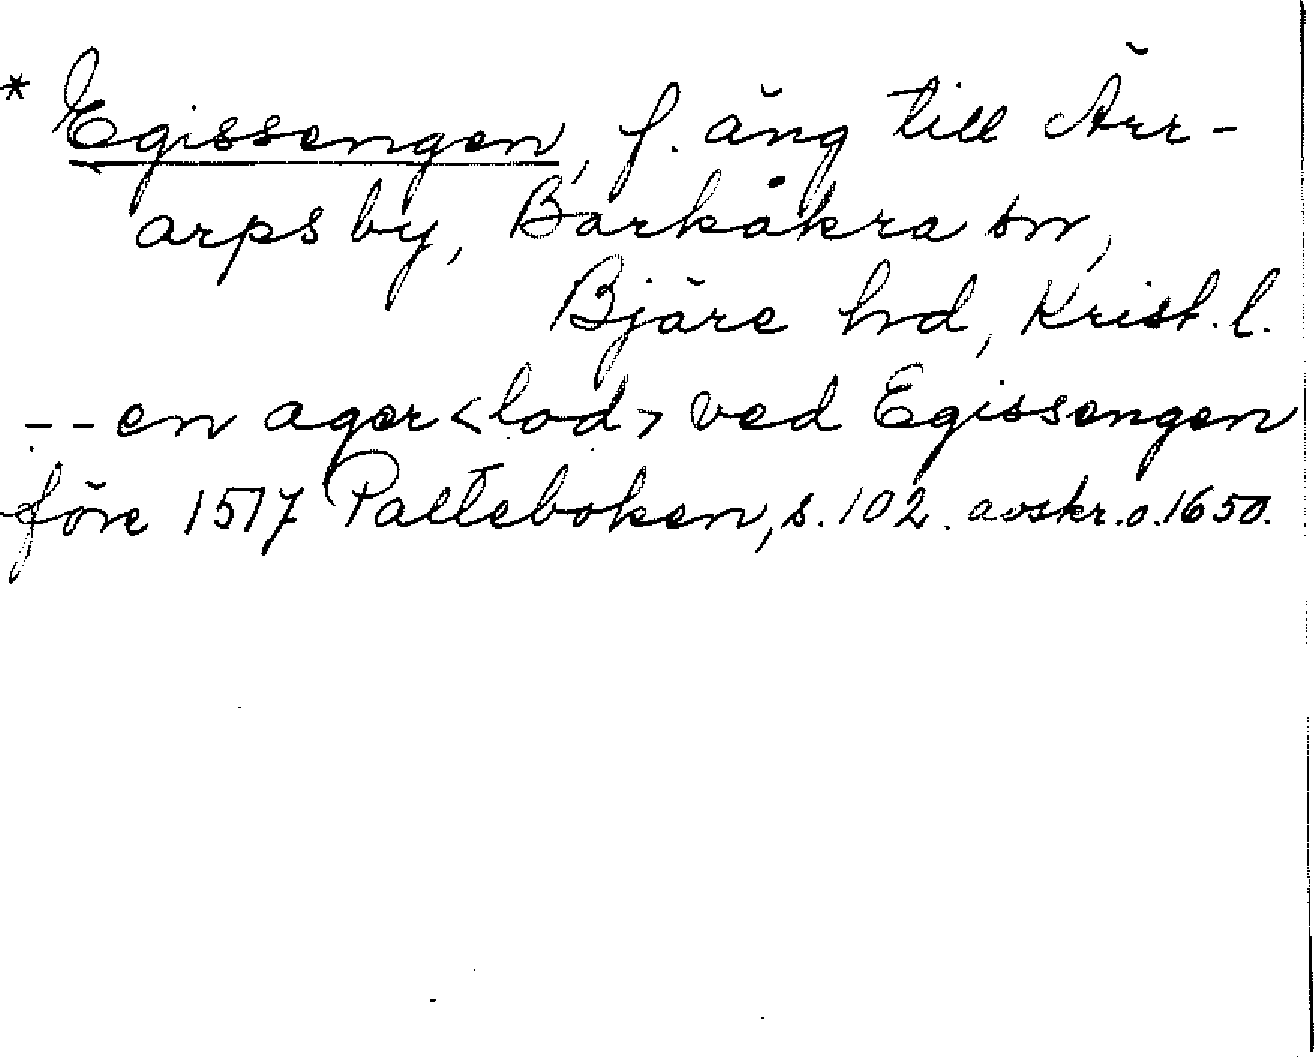 * Egissengen, f. äng till Ärr-
arps by, Barkåkra sn,
Bjäre hd, Krist. l.
-- en ager <lod> ved Egissengen
före 1517 Palteboken, s. 102. avskr. o. 1650.